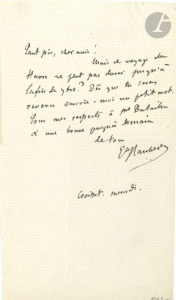 Tant pis, cher ami !
Mais ce voyage du
Havre ne peut pas durer jusqu'à
la fin de 7bre ? Dès que tu seras
revenu envoie-moi un petit mot.
Tous mes respects à
& une bonne poignée de main
de ton
Gve Flaubert
Croisset. mercredi.